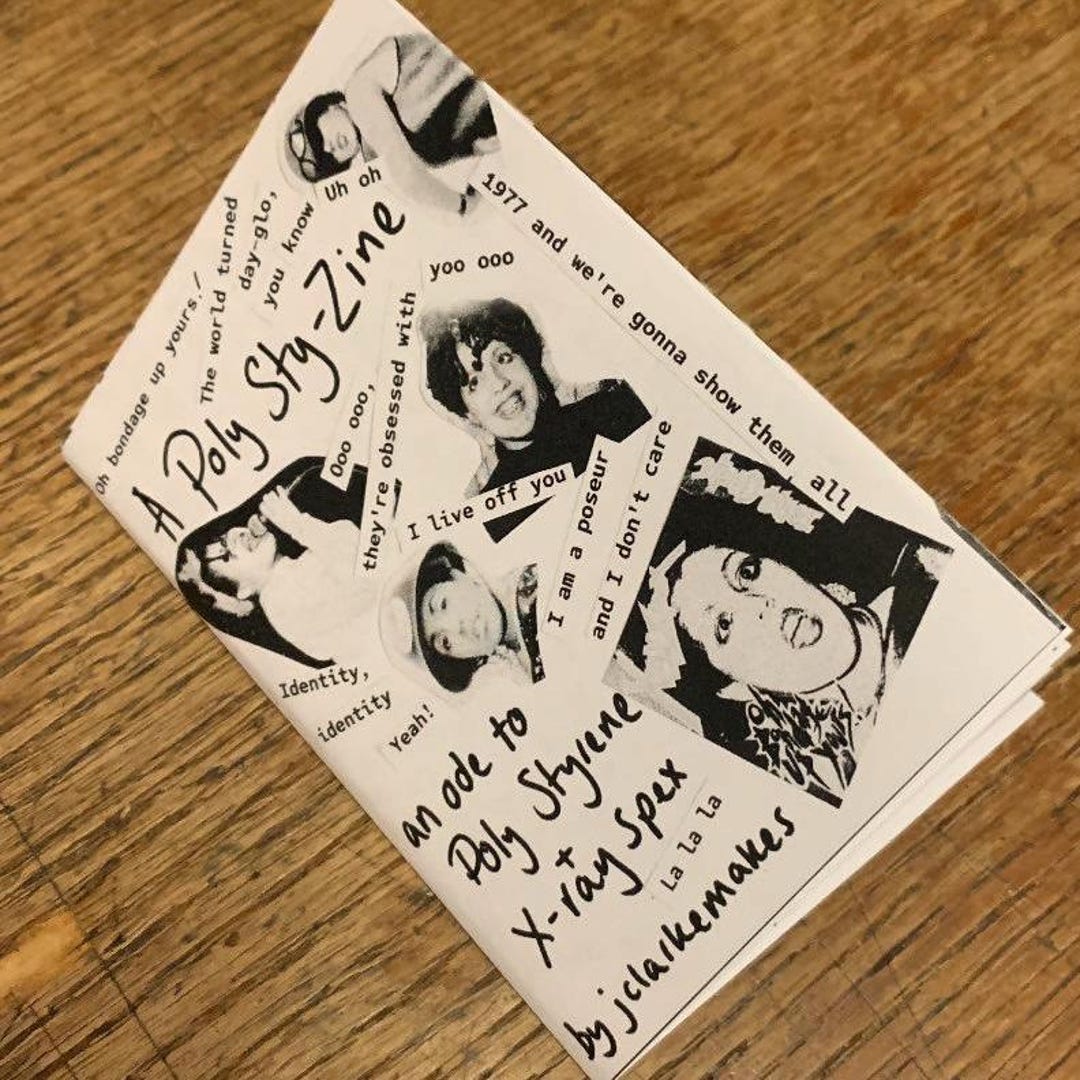 Oh bondage up yours!
The world turned
day-glo,
you know
Uh oh
A Poly Sty-Zine
1977 and we're gonna show them all
yoo ooo
Ooo ooo,
they're obsessed with
I live off you
I am a poseur
and I don't care
Identity,
identity
Yeah!
an ode to
Poly Styrene
+
X-ray Spex
La la la
by jclarkemakes